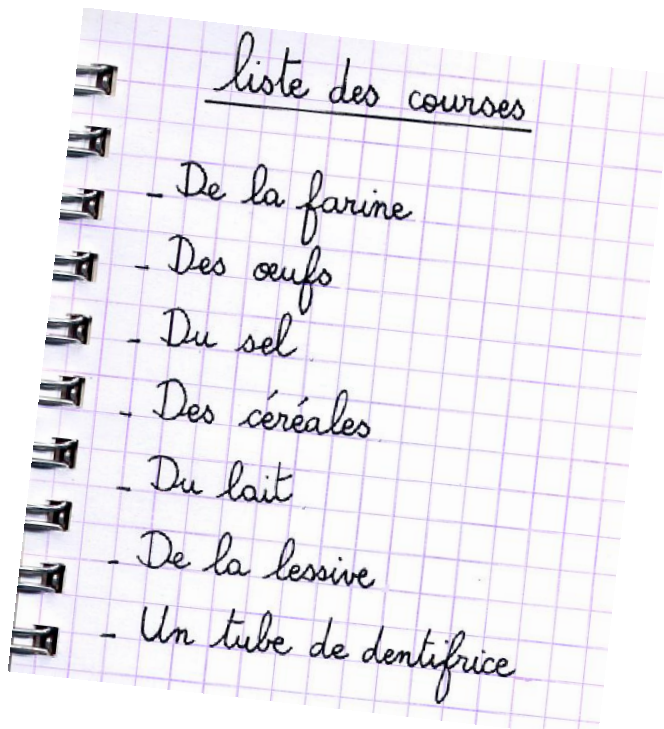 liste des courses
- De la farine
- Des œufs
- Du sel
- Des céréales
- Du lait
- De la lessive
- Un tube de dentifrice